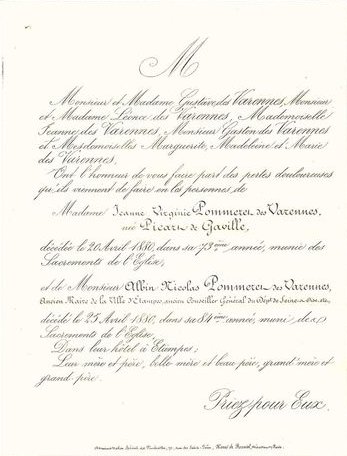 M
Monsieur et Madame Gustave des Varennes, Monsieur
et Madame Léonce des Varennes, Mademoiselle
Jeanne des Varennes, Monsieur Gaston des Varennes
et Mesdemoiselles Marguerite, Madeleine et Marie
des Varennes,
Ont l'honneur de vous faire part des pertes douloureuses
qu'ils viennent de faire en les personnes de
Madame Jeanne Virginie Pommeret des Varennes,
née Picart de Gaville,
décédée le 20 Avril 1880, dans sa 73ème année, munie des
Sacrements de l'Eglise,
et de Monsieur Albin Nicolas Pommeret des Varennes,
Ancien Maire de la Ville d'Etampes, ancien Conseiller Général du Dépt de Seine-&-Oise, etc.
décédé le 25 Avril 1880, dans sa 84ème année, muni des
Sacrements de l'Eglise,
Dans leur hôtel à Etampes;
Leur mère et père, belle mère et beau père, grand'mère et
grand-père.
Priez pour Eux.